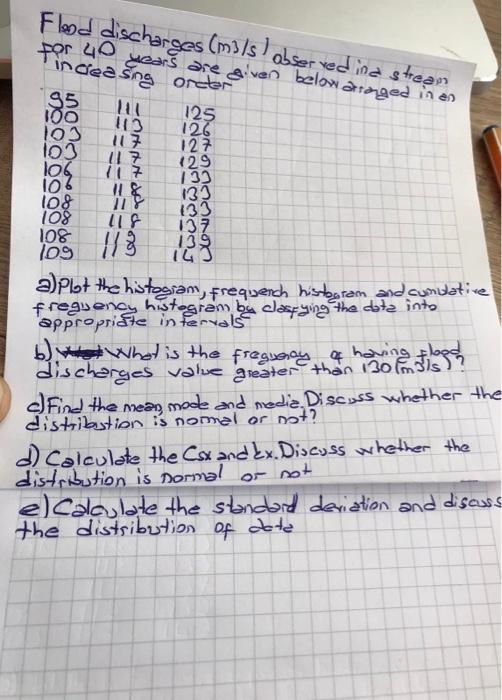 Flood discharges (m3/s) observed ina stream
for 40 years are given below arranged in an
increasing order
95 111 125
100 113 126
103 117 127
103 117 129
106 117 133
106 118 133
108 118 133
108 118 137
108 119 139
109 119 143
a) Plot the histogram, frequench histogram and cumulative
frequency histogram by classying the data into
appropriate intervals
b) What is the frequency of having flood
discharges value greater than 130 (m3/s)?
c) Find the mean, mode and media. Discuss whether the
distribution is normal or not?
d) Calculate the Csx and kx. Discuss whether the
distribution is normal or not
e) Calculate the standard deviation and discuss
the distribution of data